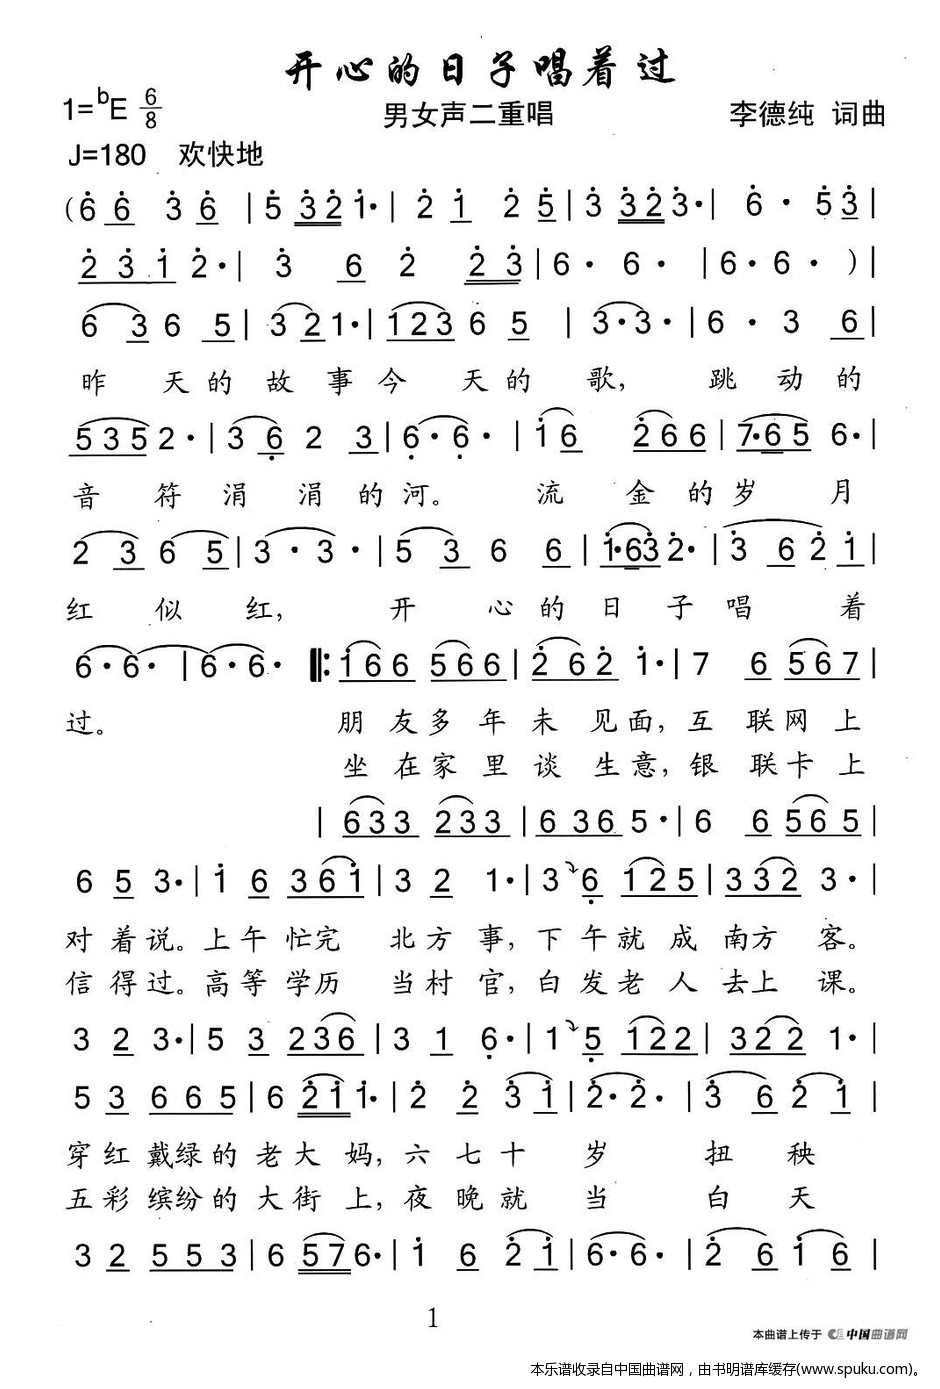 开心的日子唱着过
1=bE 6/8 男女声二重唱 李德纯 词曲
J=180 欢快地
(6 6 3 6 | 5 3 2 1· | 2 1 2 5 | 3 3 2 3· | 6 · 5 3 |
2 3 1 2· | 3 6 2 2 3 | 6· 6· | 6· 6· )|
6 3 6 5 | 3 2 1· | 1 2 3 6 5 | 3· 3· | 6 · 3 6 |
昨 天 的 故 事 今 天 的 歌, 跳 动 的
5 3 5 2· | 3 6 2 3 | 6· 6· | 1 6 2 6 6 | 7· 6 5 6· |
音 符 涓 涓 的 河。 流 金 的 岁 月
2 3 6 5 | 3 · 3 · | 5 3 6 6 | 1· 6 3 2· | 3 6 2 1 |
红 似 红, 开 心 的 日 子 唱 着
6· 6· | 6· 6· ‖: 1 6 6 5 6 6 | 2 6 2 1· | 7 6 5 6 7 |
过。 朋 友 多 年 未 见 面, 互 联 网 上
坐 在 家 里 谈 生 意, 银 联 卡 上
| 6 3 3 2 3 3 | 6 3 6 5· | 6 6 5 6 5 |
6 5 3· | 1 6 3 6 1 | 3 2 1· | 3 6 1 2 5 | 3 3 2 3· |
对 着 说。 上 午 忙 完 北 方 事, 下 午 就 成 南 方 客。
信 得 过。 高 等 学 历 当 村 官, 白 发 老 人 去 上 课。
3 2 3· | 5 3 2 3 6 | 3 1 6· | 1 5 1 2 2 | 3 2 2 1· |
5 3 6 6 5 | 6 2 1 1· | 2 2 3 1 | 2· 2· | 3 6 2 1 |
穿 红 戴 绿 的 老 大 妈, 六 七 十 岁 扭 秧
五 彩 缤 纷 的 大 街 上, 夜 晚 就 当 白 天
3 2 5 5 3 | 6 5 7 6· | 1 6 2 1 | 6· 6· | 2 6 1 6 |
1
本曲谱上传于 中国曲谱网
本乐谱收录自中国曲谱网，由书明谱库缓存(www.spuku.com)。